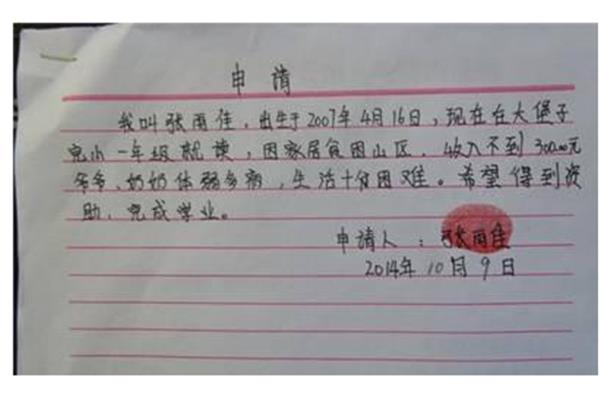 申请
我叫张雨佳，出生于2007年4月16日，现在在大堡子
完小一年级就读，因家居贫困山区，收入不到300.00元
爷爷、奶奶体弱多病，生活十分困难。希望得到资
助，完成学业。
申请人：张雨佳
2014年10月9日